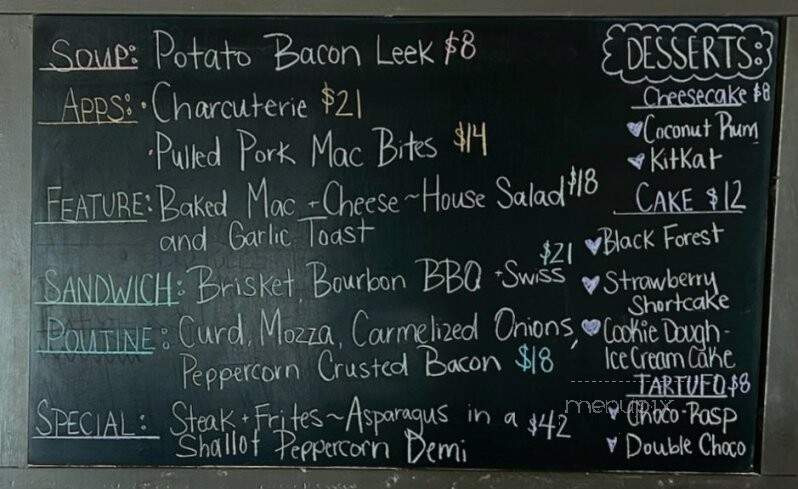 Soup: Potato Bacon Leek $8
Apps: • Charcuterie $21
• Pulled Pork Mac Bites $14
Feature: Baked Mac + Cheese ~ House Salad $18
and Garlic Toast
Sandwich: Brisket, Bourbon BBQ + Swiss $21
Poutine: Curd, Mozza, Carmelized Onions,
Peppercorn Crusted Bacon $18
Special: Steak + Frites ~ Asparagus in a $42
Shallot Peppercorn Demi
DESSERTS:
Cheesecake $8
Coconut Rum
KitKat
CAKE $12
Black Forest
Strawberry
Shortcake
Cookie Dough -
Ice Cream Cake
TARTUFO $8
menupix
Choco-Rasp
Double Choco